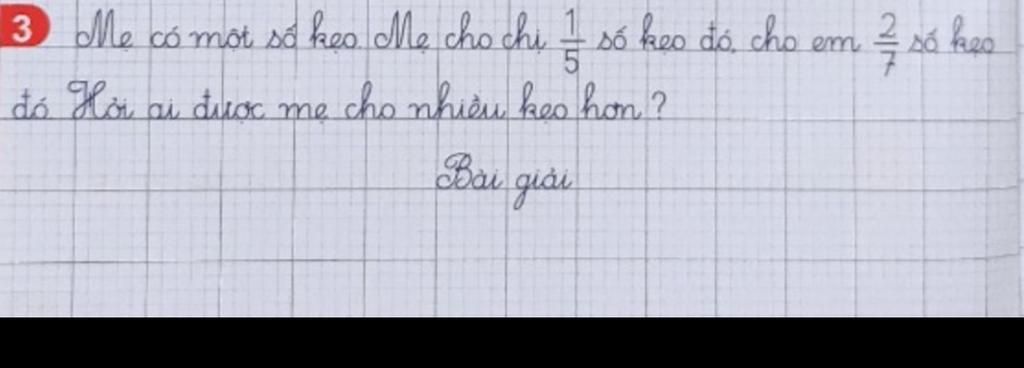 3 Mẹ có một số kẹo. Mẹ cho chị 1/5 số kẹo đó, cho em 2/7 số kẹo
đó. Hỏi ai được mẹ cho nhiều kẹo hơn?
Bài giải